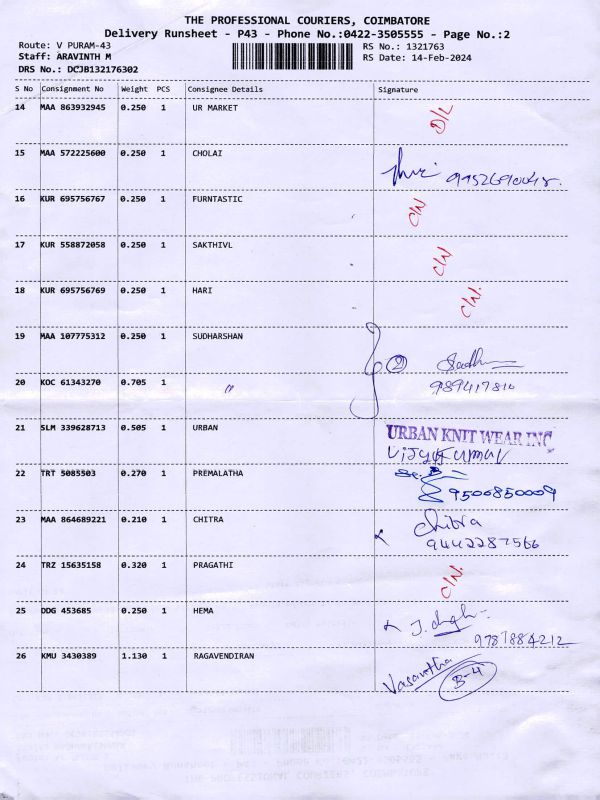 THE PROFESSIONAL COURIERS, COIMBATORE
Delivery Runsheet - P43 - Phone No.:0422-3505555 - Page No.:2
Route: V PURAM-43 RS No.: 1321763
Staff: ARAVINTH M RS Date: 14-Feb-2024
DRS No.: DCJB132176302
S No Consignment No Weight PCS Consignee Details Signature
14 MAA 863932945 0.250 1 UR MARKET D/L
15 MAA 572225600 0.250 1 CHOLAI
16 KUR 695756767 0.250 1 FURNTASTIC C/N
17 KUR 558872058 0.250 1 SAKTHIVL C/N
18 KUR 695756769 0.250 1 HARI C/N.
19 MAA 107775312 0.250 1 SUDHARSHAN 2
20 KOC 61343270 0.705 1 〃 989417810
21 SLM 339628713 0.505 1 URBAN URBAN KNIT WEAR INC
Vijaykumar
22 TRT 5085503 0.270 1 PREMALATHA 9500850009
23 MAA 864689221 0.210 1 CHITRA Chitra
9442287566
24 TRZ 15635158 0.320 1 PRAGATHI C/N.
25 DDG 453685 0.250 1 HEMA
9787884212
26 KMU 3430389 1.130 1 RAGAVENDIRAN Vasantha B-4